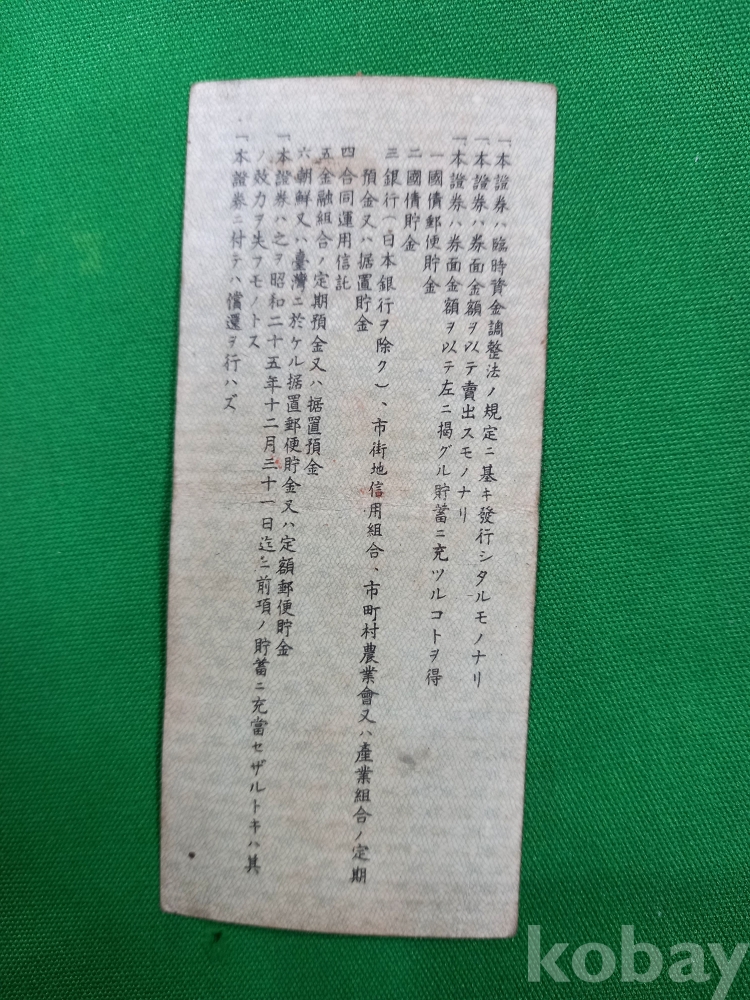 「本證券ハ臨時資金調整法ノ規定ニ基キ發行シタルモノナリ
「本證券ハ券面金額ヲ以テ賣出スモノナリ
「本證券ハ券面金額ヲ以テ左ニ揭グル貯蓄ニ充ツルコトヲ得
一國債郵便貯金
二國債貯金
三銀行(日本銀行ヲ除ク)、市街地信用組合、市町村農業會又ハ產業組合ノ定期
預金又ハ据置貯金
四合同運用信託
五金融組合ノ定期預金又ハ据置預金
六朝鮮又ハ臺灣ニ於ケル据置郵便貯金又ハ定額郵便貯金
「本證券ハ之ヲ昭和二十五年十二月三十一日迄ニ前項ノ貯蓄ニ充當セザルトキハ其
ノ效力ヲ失フモノトス
「本證券ニ付テハ償還ヲ行ハズ
kobay